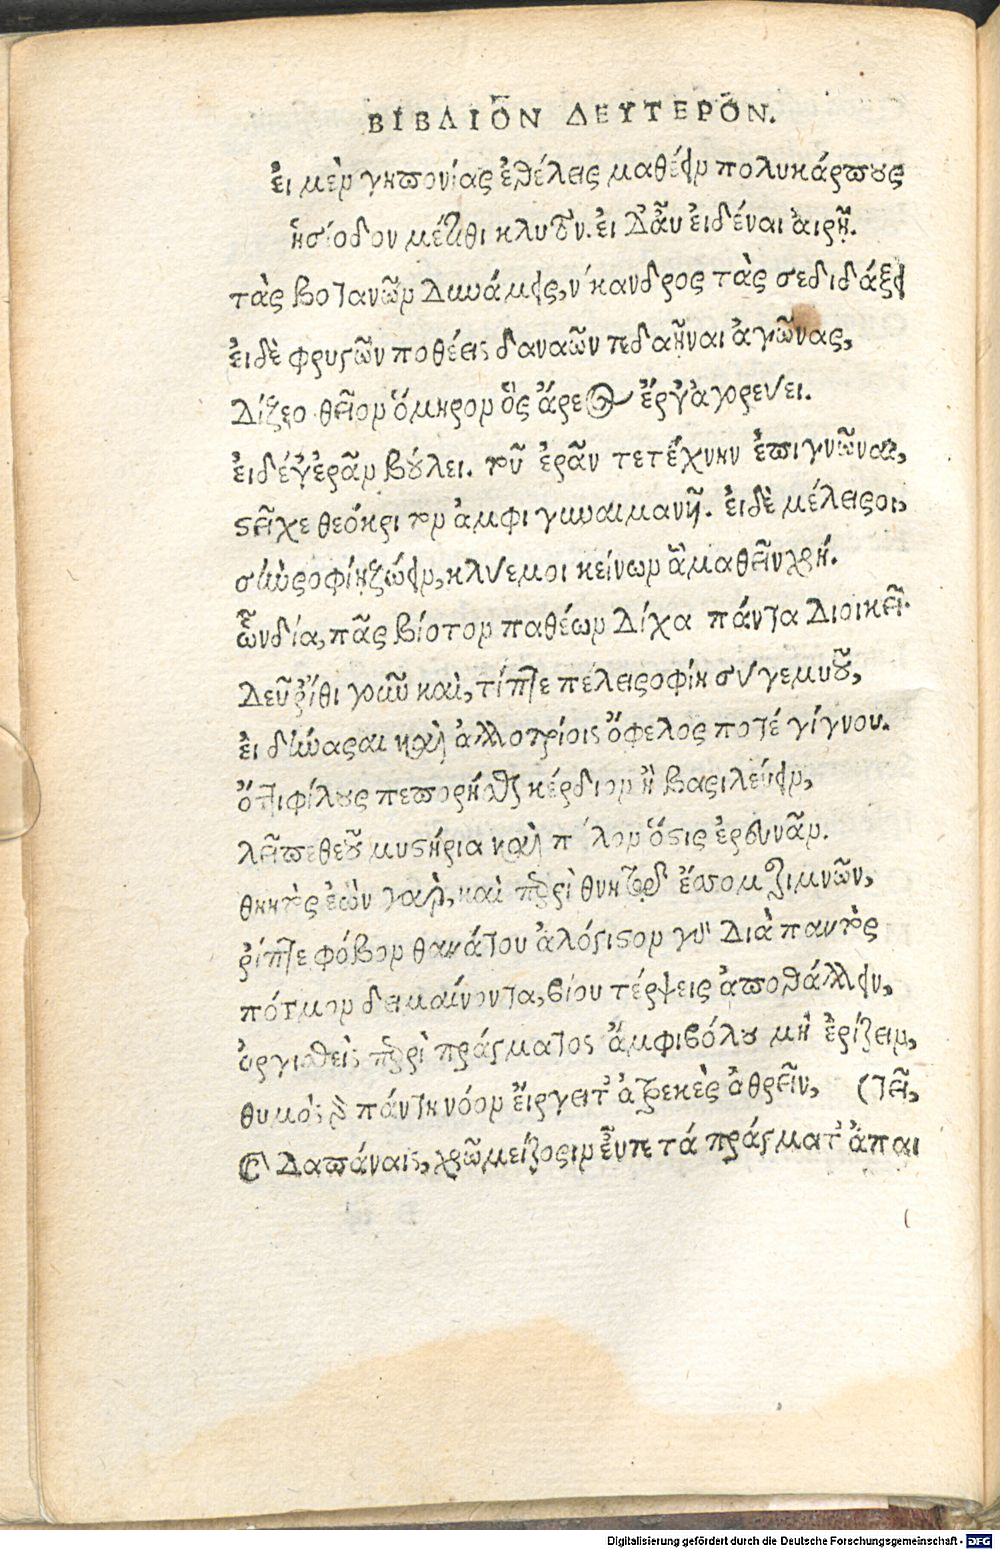 ΒΙΒΛΙΟ͂Ν ΔΕΥΤΕΡΟ͂Ν.
ἐι μὲν γηπονίας ἐθέλεις μαθέειν πολυκάρπους
ἡσίοδον μέτιθι κλυτὸν. ἐι δ' ἆυ ἐιδέναι ἀιρῇ.
τὰς βοτανῶν δυνάμεις, νίκανδρος τὰς σε διδάξει
ἐι δὲ φρυγῶν ποθέεις δαναῶν τε δαῆναι ἀγῶνας,
δίζεο θεῖον ὅμηρον ὃς ἄρεος ἔργ' ἀγορεύει.
ἐι δέ γ' ἐρᾶν βούλει. τοῦ ἐρᾶν τε τέχνην ἐπιγνῶναι,
στεῖχε θεόκριτον ἀμφι γυναιμανῆ. ἐι δὲ μέλει σοι,
σὺν σοφίῃ ζώειν, κλύε μοι κείνων ἃ μαθεῖν χρή.
ὧν δία, πᾶς βίοτον παθέων δίχα πάντα διοικεῖ.
δεῦρ' ἴθι γοῦν καὶ, τίπτε πέλει σοφίη σύ γ' ἐμοῦ,
ἐι δύνασαι καὶ ἀλλοτρίοις ὄφελος ποτέ γίγνου.
ὅττι φίλους πεπορῆσθαι κέρδιον ἢ βασιλεύειν,
λεῖπε θεοῦ μυστήρια καὶ πόλον ὅστις ἐρευνᾶν.
θνητὸς ἐὼν γὰρ, καὶ περὶ θνητῶν
ῥίπτε φόβον θανάτου ἀλόγιστον γὰρ διὰ παντὸς
πότμον δειμαίνοντα, βίου τέρψεις ἀποθάλλειν,
ὀργισθεὶς περὶ πράγματος ἀμφιβόλου μὴ ἐρίζειν,
θυμὸς δὲ πάντη νόον ἔιργει τ' ἀτρεκὲς ἀθρεῖν, (τεῖ,
δαπάναις, χρῶ μείζοσιν ἦν τε τά πράγματ' ἀπαι
Digitalisierung gefördert durch die Deutsche Forschungsgemeinschaft - DFG